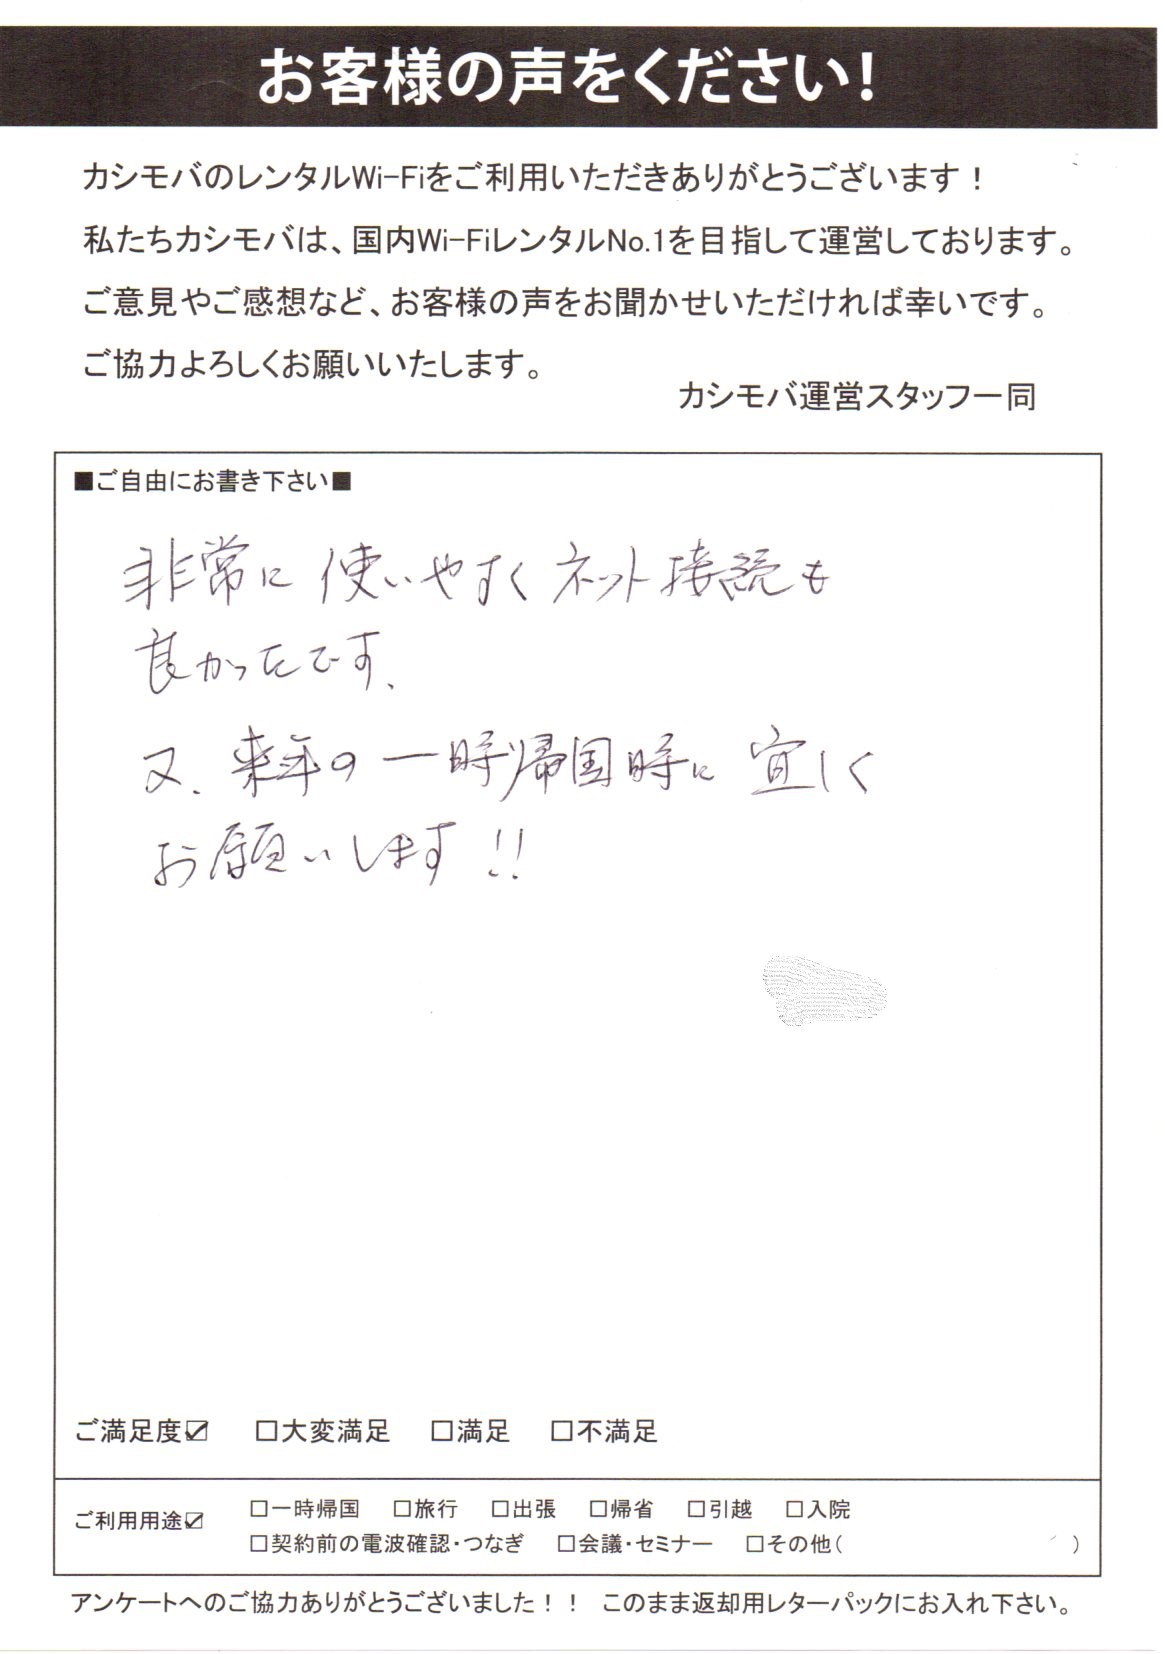 お客様の声をください！
カシモバのレンタルWi-Fiをご利用いただきありがとうございます！
私たちカシモバは、国内Wi-FiレンタルNo.1を目指して運営しております。
ご意見やご感想など、お客様の声をお聞かせいただければ幸いです。
ご協力よろしくお願いいたします。
カシモバ運営スタッフ一同
■ご自由にお書き下さい■
非常に使いやすくネット接続も
良かったです.
又.来年の一時帰国時に宜しく
お願いします!!
ご満足度☑ □大変満足 □満足 □不満足
ご利用用途☑ □一時帰国 □旅行 □出張 □帰省 □引越 □入院
□契約前の電波確認・つなぎ □会議・セミナー □その他( )
アンケートへのご協力ありがとうございました！！ このまま返却用レターパックにお入れ下さい。